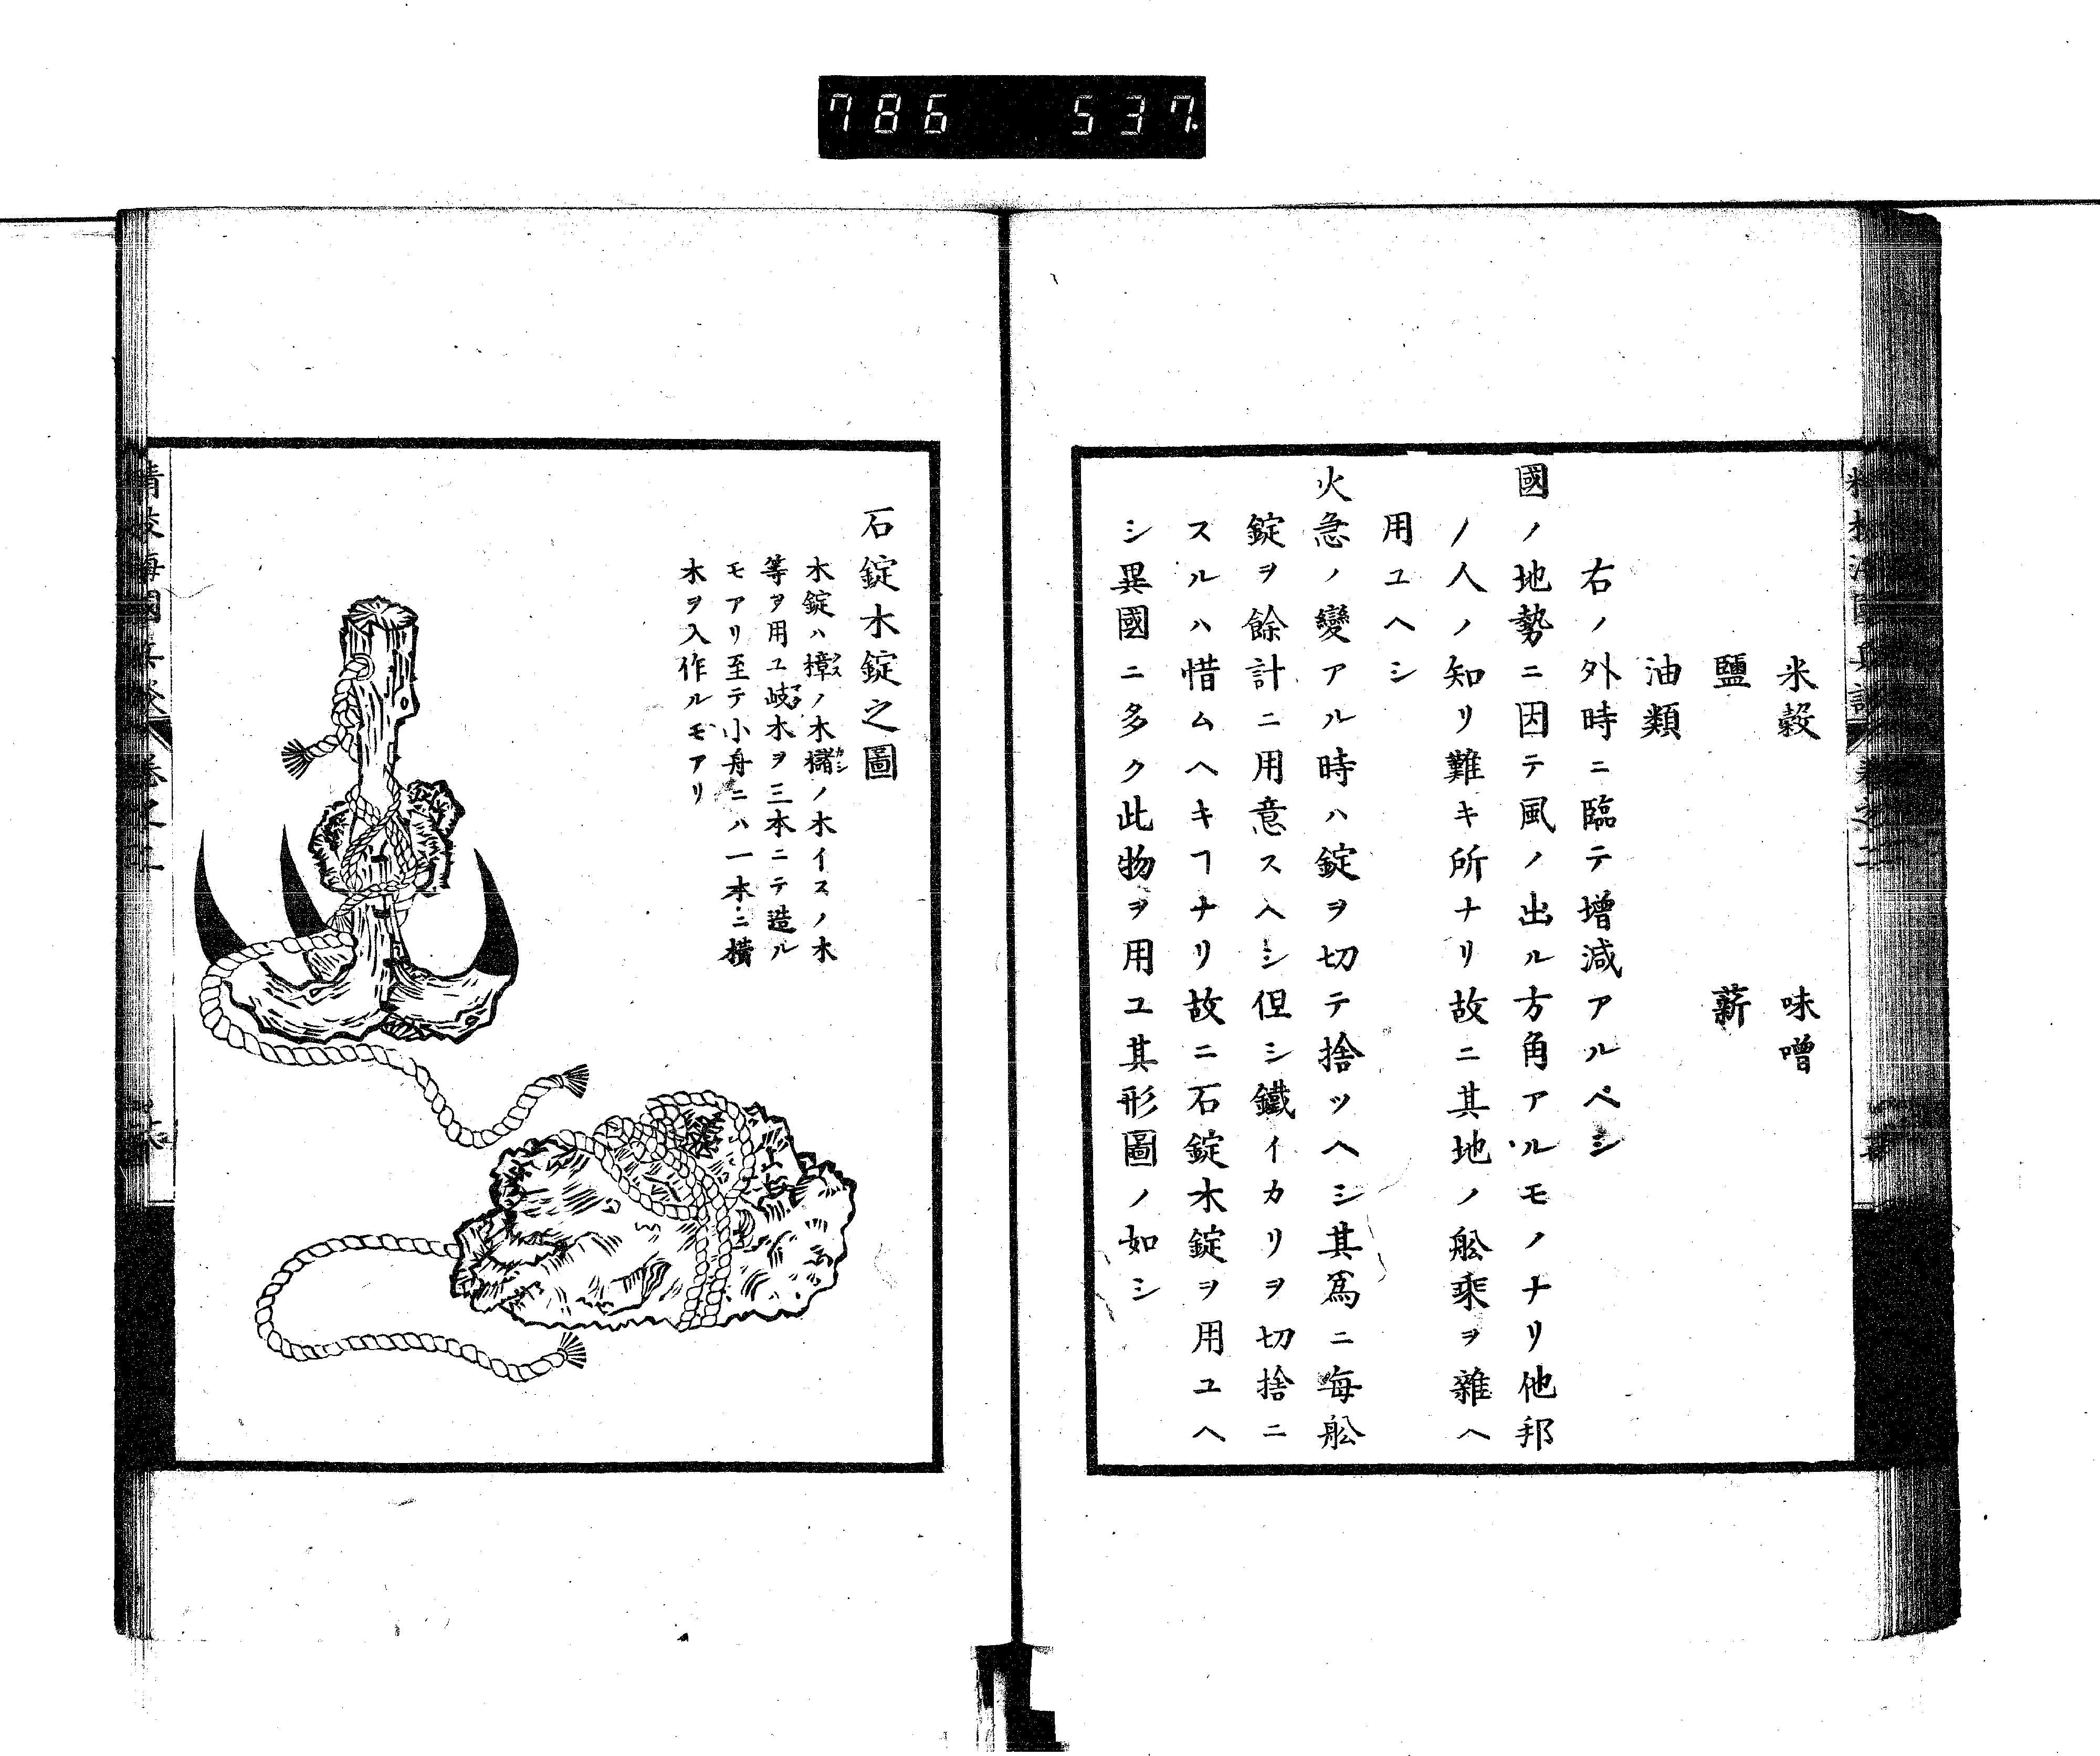 786 537
米穀 味噌
鹽 薪
油類
右ノ外時ニ臨テ増減アルベシ
國ノ地勢ニ因テ風ノ出ル方角アルモノナリ他邦
ノ人ノ知リ難キ所ナリ故ニ其地ノ舩乘ヲ雜ヘ
用ユヘシ
火急ノ變アル時ハ錠ヲ切テ捨ツヘシ其爲ニ毎舩
錠ヲ餘計ニ用意スヘシ但シ鐵イカリヲ切捨ニ
スルハ惜ムヘキヿナリ故ニ石錠木錠ヲ用ユヘ
シ異國ニ多ク此物ヲ用ユ其形圖ノ如シ
石錠木錠之圖
木錠ハ樟ノ木槧ノ木イスノ木
等ヲ用ユ岐木ヲ三本ニテ造ル
モアリ至テ小舟ニハ一本ニ横
木ヲ入作ルモアリ